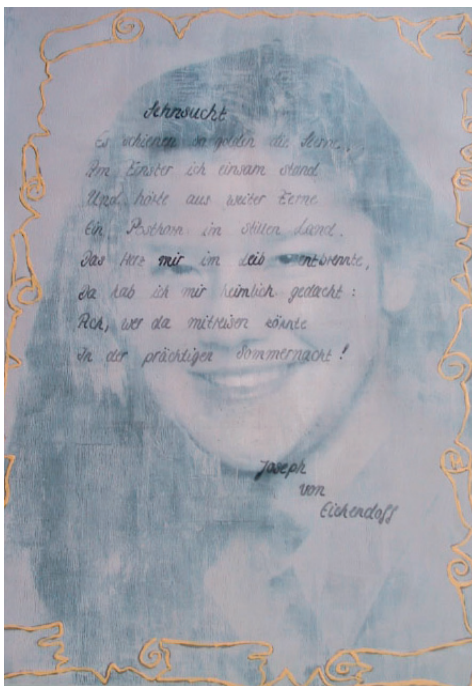 Sehnsucht
Es schienen so golden die Sterne,
Am Fenster ich einsam stand
Und hörte aus weiter Ferne
Ein Posthorn im stillen Land.
Das Herz mir im Leib entbrennte,
Da hab ich mir heimlich gedacht:
Ach, wer da mitreisen könnte
In der prächtigen Sommernacht!
Joseph
von
Eichendoff